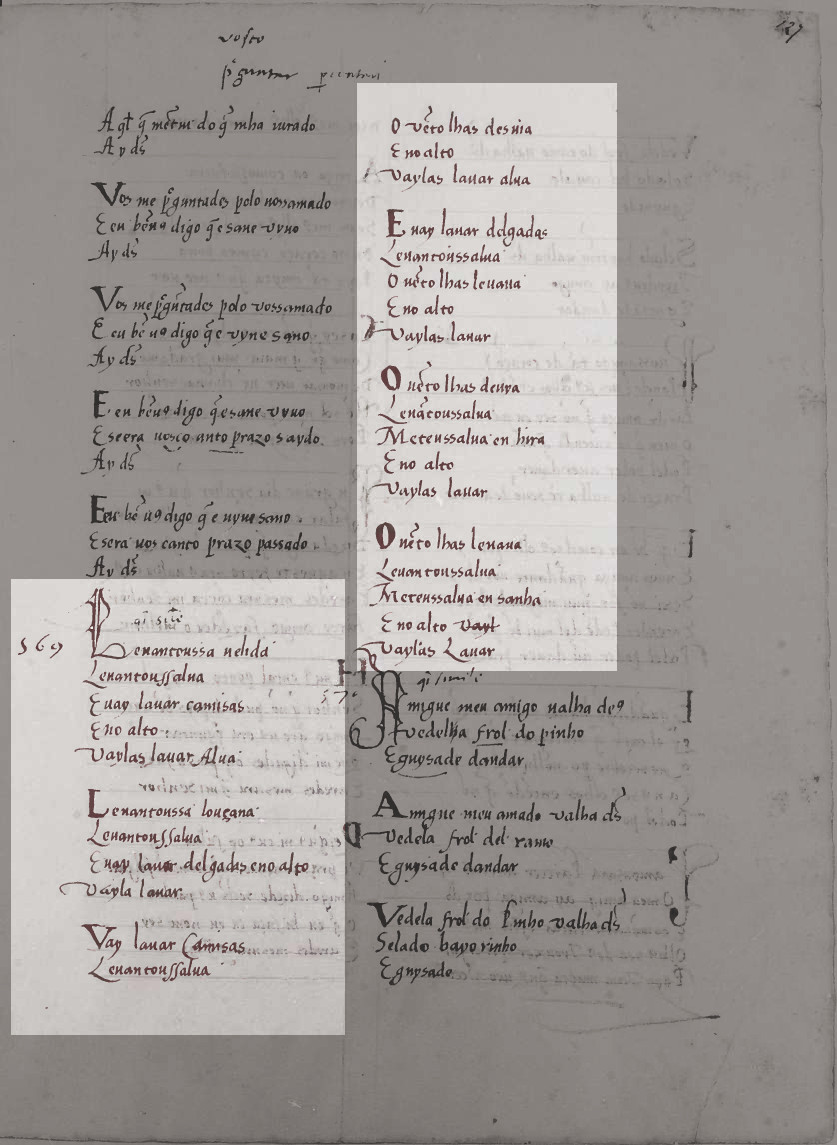 vosco
pguntar
127
A qł q̃ mẽtiu do q̃ mha iurado
Ay ds̃
Vos me pguntades polo uossamado
E eu bẽ uꝯ digo q̃ e sane vyuo
Ay ds̃
Vos me pgũtades polo vossamado
E eu bẽ uꝯ digo q̃ e vyue sano
Ay ds̃
E eu bẽ uꝯ digo q̃ e sane vyuo
E seera uosco anto prazo saydo
Ay ds̃
E eu bẽ uꝯ digo q̃ e uyue sano
E sera uos canto prazo passado
Ay ds̃
569
Leuantoussa uelida
Leuantoussalua
E uay lauar camisas
E no alto
Vaylas lauar Alua
Leuantoussa louçana
Leuantoussalua
E uay lauar delgadas eno alto
Vayla lauar
Vay lauar Camisas
Leuantoussalua
O uẽto lhas desuia
E no alto
Vaylas lauar alua
E uay lauar delgadas
Leuantoussalua
O uẽto lhas leuaua
E no alto
Vaylas lauar
O uẽto lhas deuya
Leuãtoussalua
Meteussalua en hira
E no alto
Vaylas lauar
O uẽto lhas leuaua
Leuantoussalua
Meteussalua en sanha
E no alto vayl
Vaylas Lauar
570
Amigue meu amigo ualha deꝯ
Vedelha frol do pinho
E guysade dandar
Amigue meu amado valha ds̃
Vedela frol del ramo
E guysade dandar
Vedela frol do Pinho valha ds̃
Selado bayorinho
E guysado